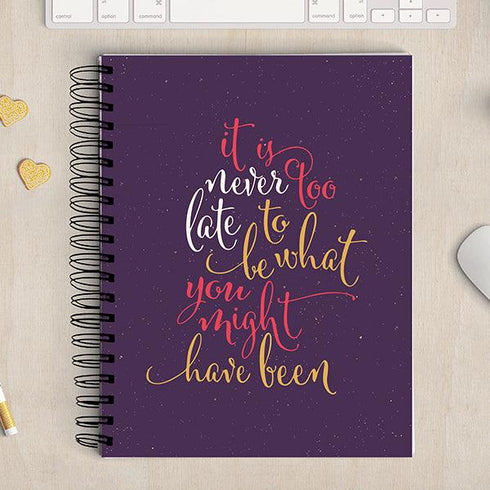 control option command command option control
it is
never too
late to
be what
you
might
have been